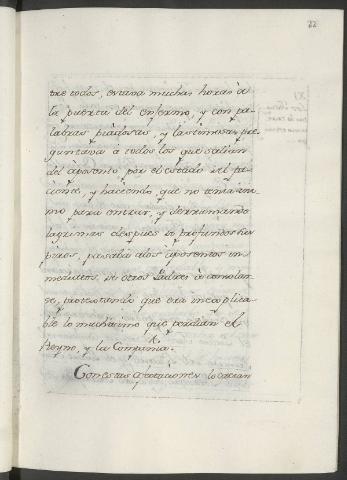 22
tre todos, estava muchas horas à
la puerta del enfermo, y con pa-
labras piadosas, y lastimosas pre-
guntava à todos los que salian
del aposento por el estado del pa-
ciente, y haciendo, que no tenia ani-
mo para entrar, y derramando
lagrimas despues de profundos sus-
piros, pasaba alos aposentos in-
mediatos, de otros Padres à consolar-
se, protestando que era inexplica-
ble lo muchisimo que perdian el
Reyno, y la Compañia.
Con estas expreciones lo creian